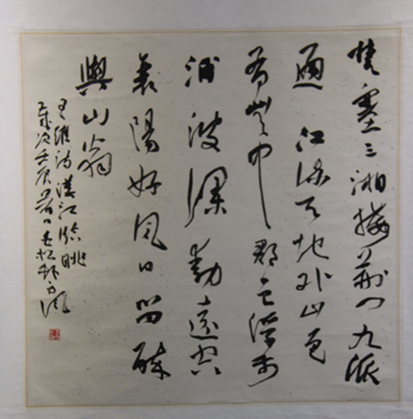 楚塞三湘接荊門九派
通江流天地外山色
有無中郡邑浮前
浦波瀾動遠空
襄陽好風日留醉
與山翁
王維詩漢江臨眺
歲次壬辰